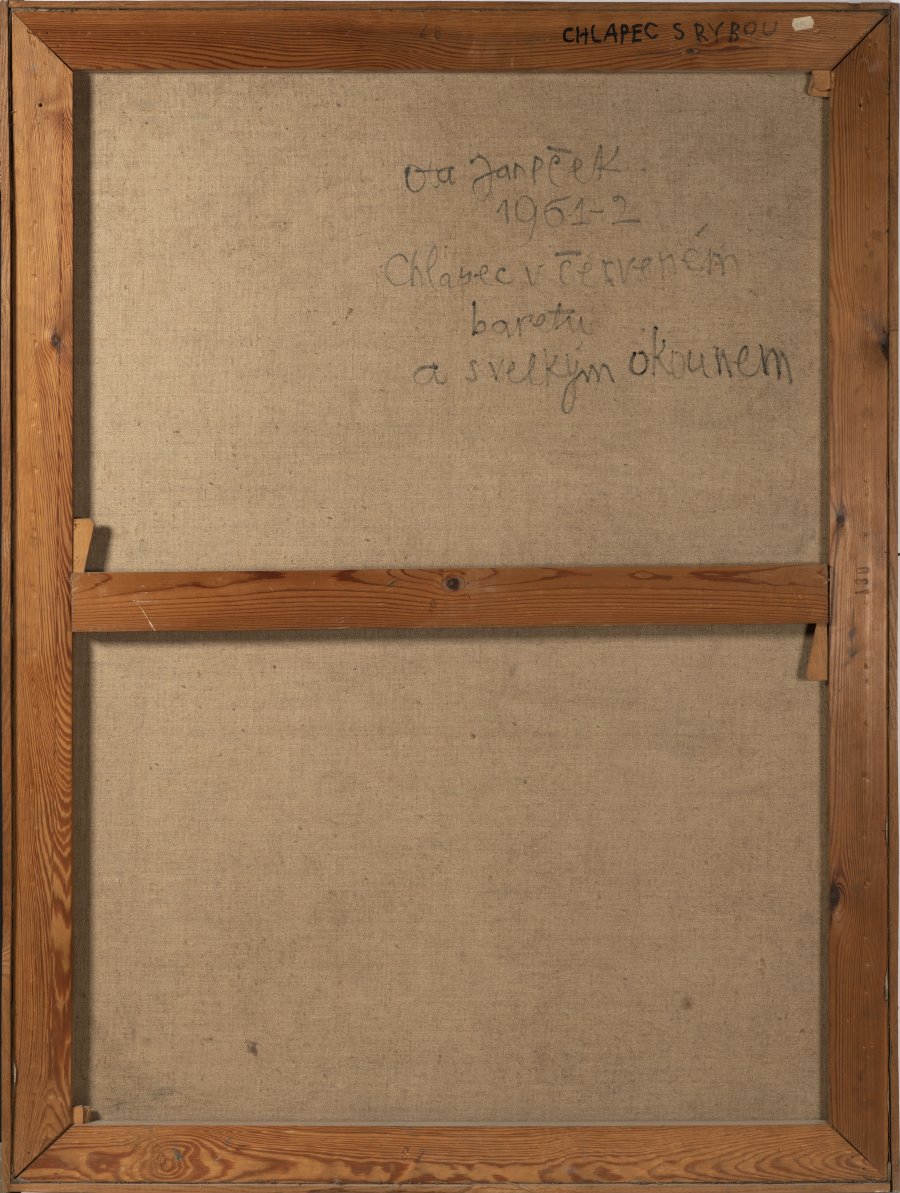 CHLAPEC S RYBOU
Ota Janeček
1961-2
Chlapec v červeném
baretu
a s velkým okounem